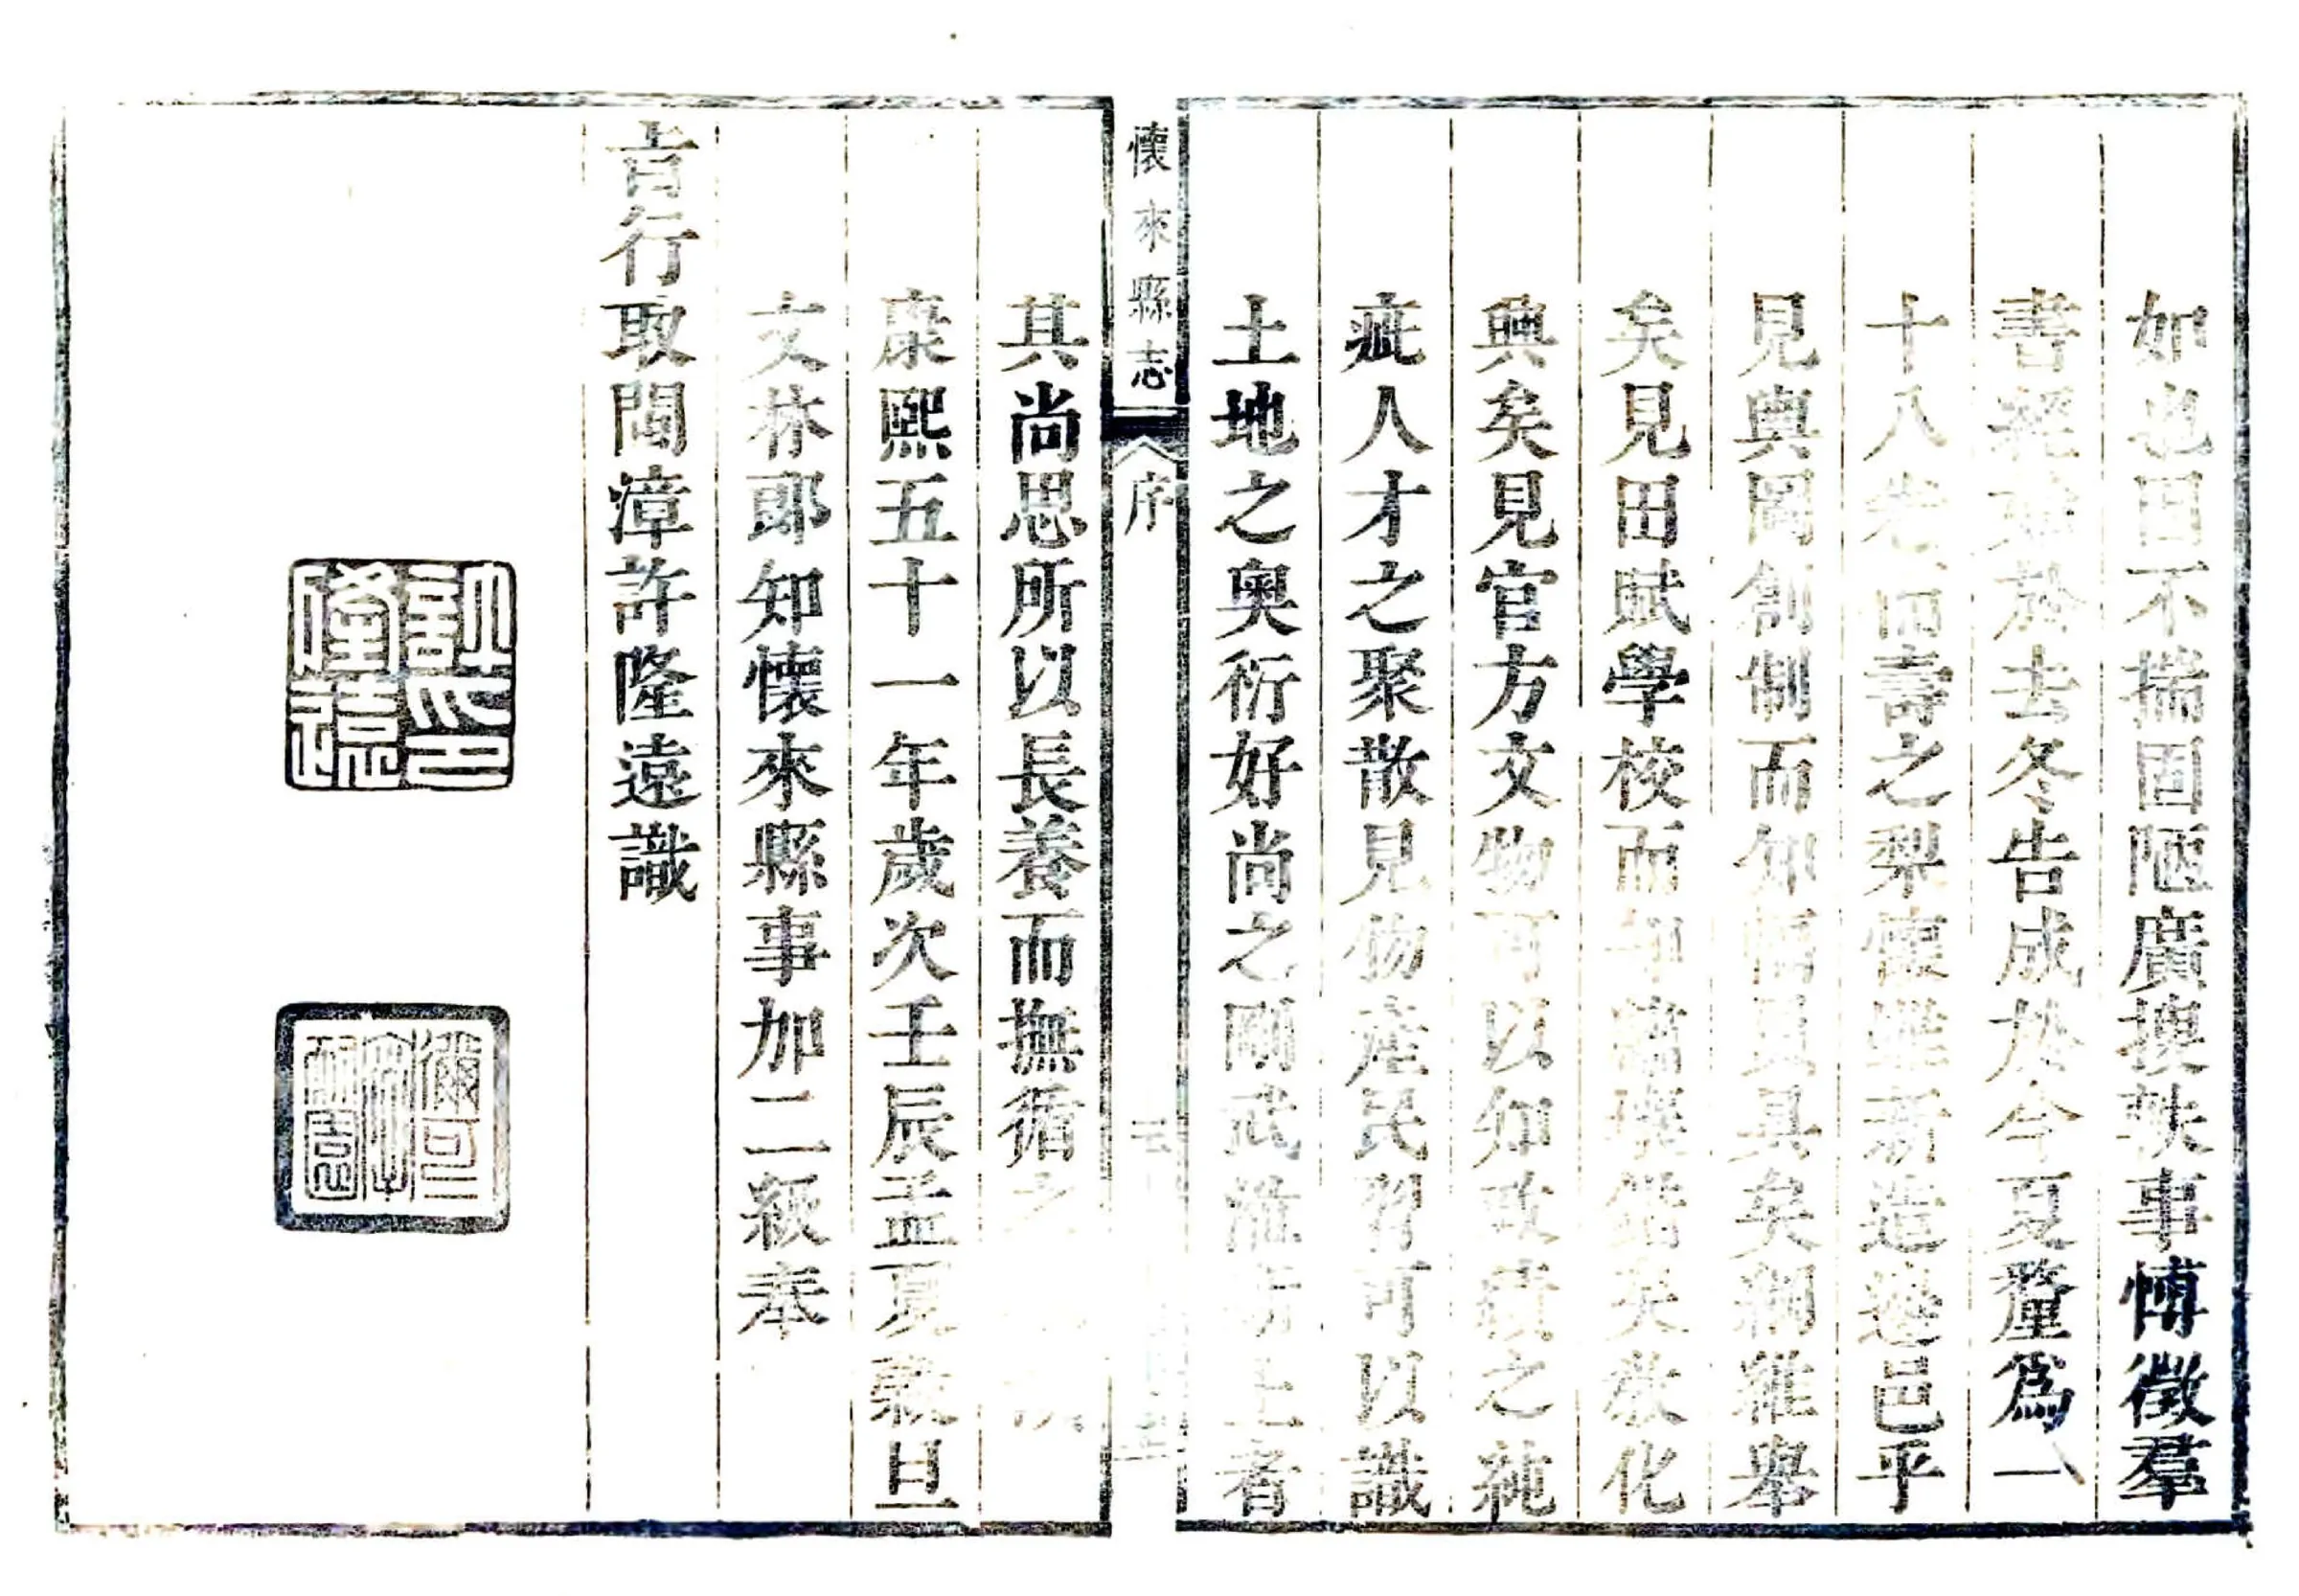 如也因不揣固陋廣搜軼事愽徵羣
書經始於去冬告成於今夏釐爲一
十八卷而壽之梨懷雖新造邊邑乎
見輿圖創制而知幅員具矣綱維舉
矣見田賦學校而知矣教化
興矣見官方文物可以知政績之純
疵人才之聚散見物產民習可以識
土地之奧衍好尚之剛武蒞斯土者
懷來縣志 序
其尚思所以長養而撫循之
康熙五十一年歲次壬辰孟夏穀旦
文林郎知懷來縣事加二級奉
旨行取閩漳許隆遠識
許印隆遠